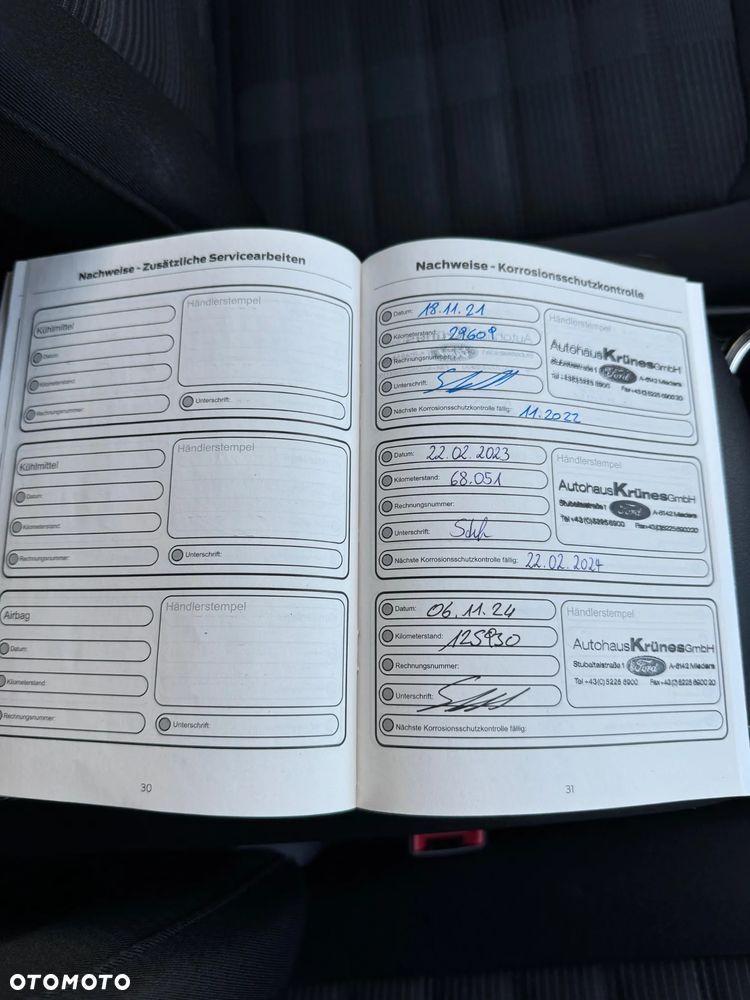 Nachweise - Zusätzliche Servicearbeiten
Kühlmittel
Händlerstempel
Datum:
Kilometerstand:
Rechnungsnummer:
Unterschrift:
Kühlmittel
Händlerstempel
Datum:
Kilometerstand:
Rechnungsnummer:
Unterschrift:
Airbag
Händlerstempel
Datum:
Kilometerstand:
Rechnungsnummer:
Unterschrift:
30
Nachweise - Korrosionsschutzkontrolle
Datum: 18.11.21
Kilometerstand: 29609
Rechnungsnummer:
Unterschrift:
Nächste Korrosionsschutzkontrolle fällig: 11.2022
Händlerstempel
Autohaus Krünes GmbH
Stubaitalstraße 1 Ford A-6142 Mieders
Tel +43(0)5225 6900 Fax+43(0)5225690020
Datum: 22.02.2023
Kilometerstand: 68.051
Rechnungsnummer:
Unterschrift:
Nächste Korrosionsschutzkontrolle fällig: 22.02.2024
Händlerstempel
Autohaus Krünes GmbH
Stubaitalstraße 1 Ford A-6142 Mieders
Tel +43(0)5225 6900 Fax+43(0)5225690020
Datum: 06.11.24
Kilometerstand: 125930
Rechnungsnummer:
Unterschrift:
Nächste Korrosionsschutzkontrolle fällig:
Händlerstempel
Autohaus Krünes GmbH
Stubaitalstraße 1 Ford A-6142 Mieders
Tel +43(0)5225 6900 Fax+43(0)5225 6900 20
31
OTOMOTO